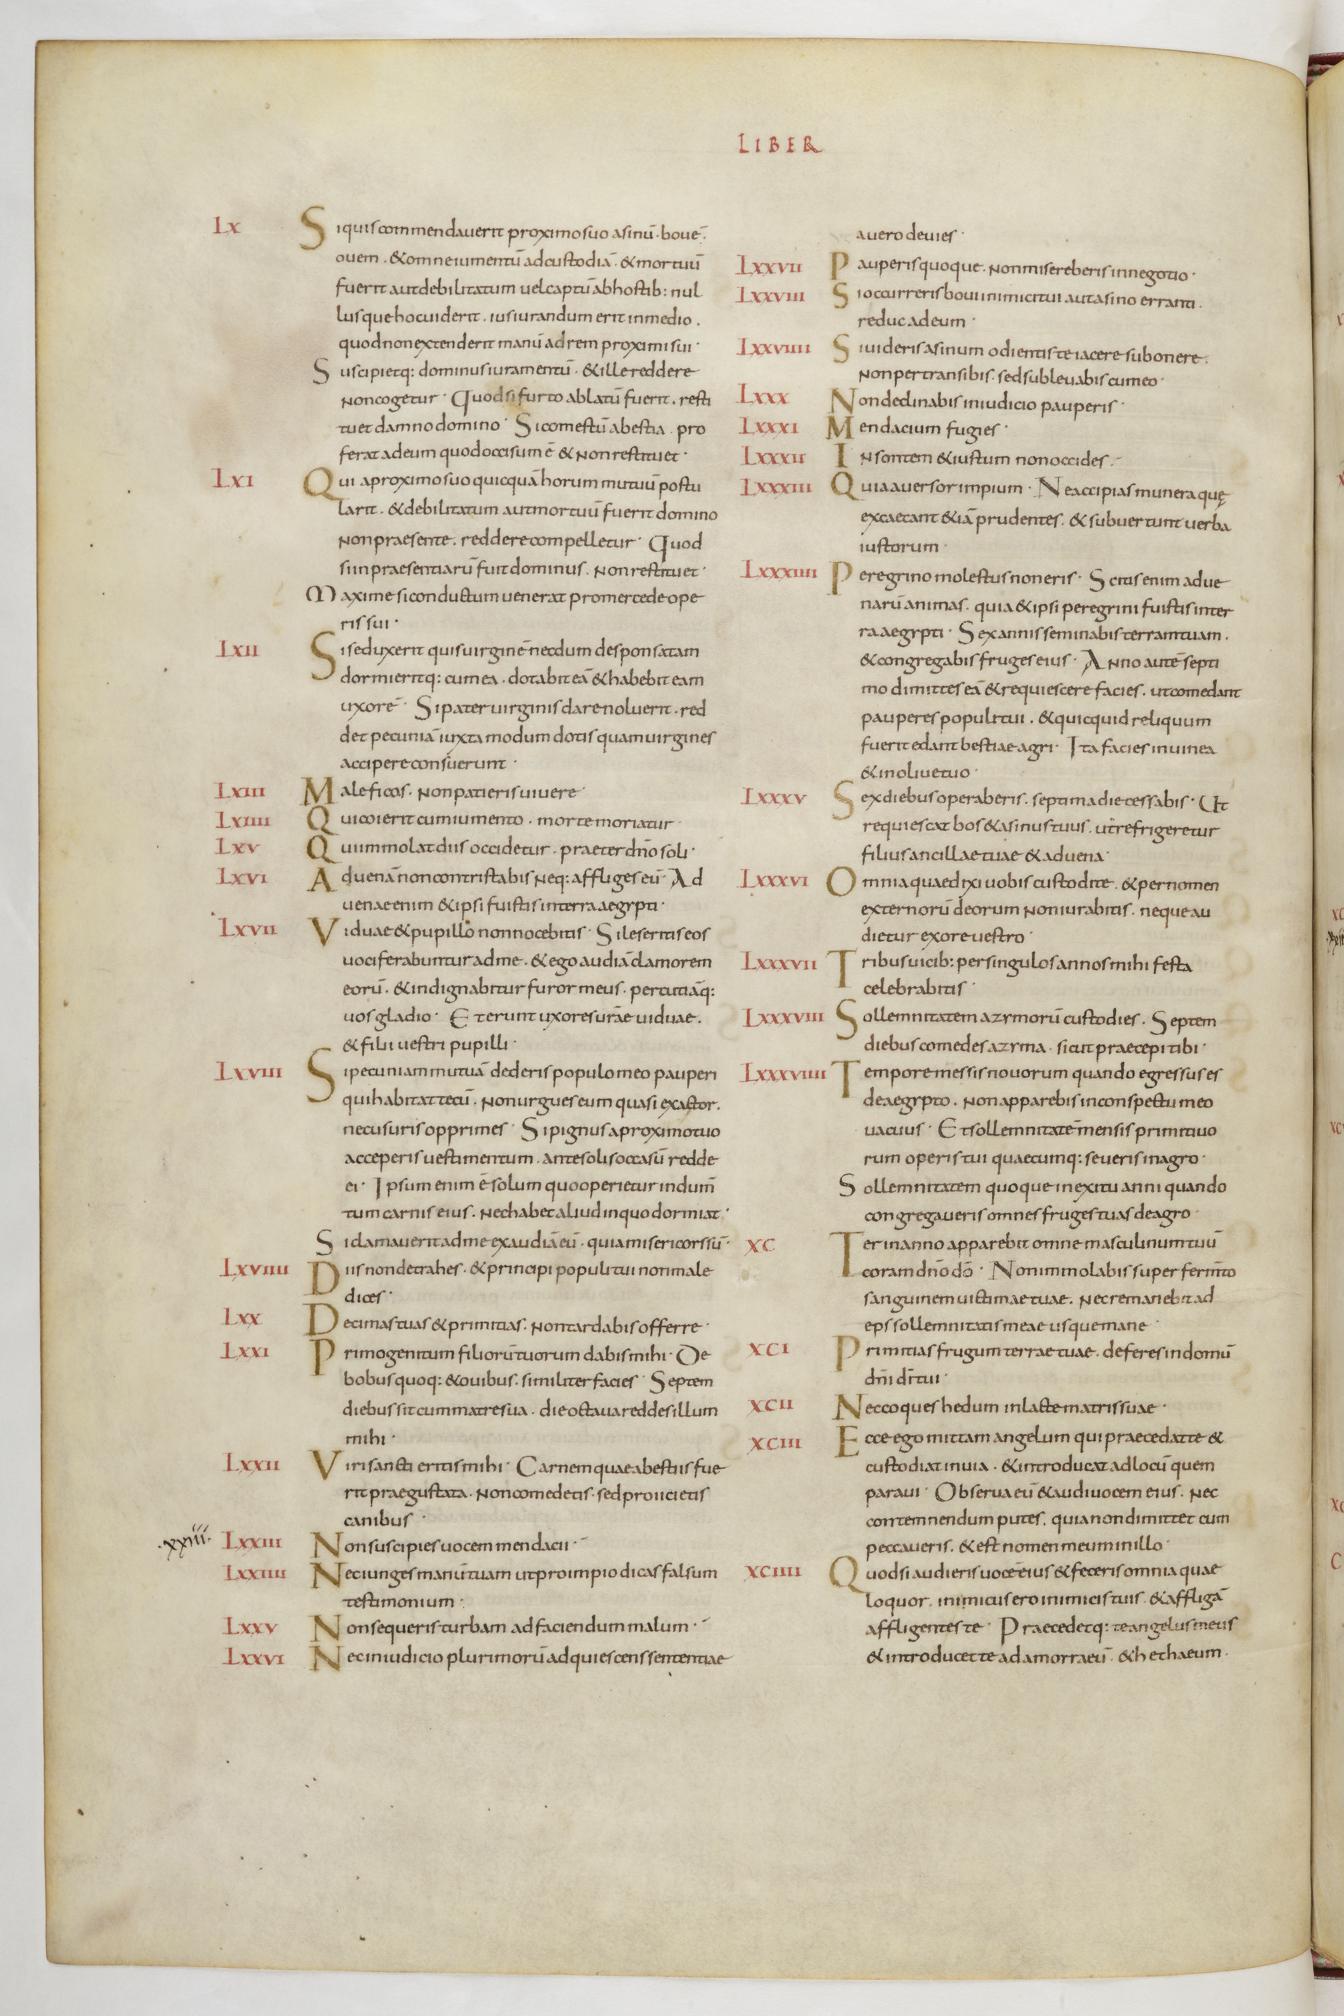 LIBER
LX Siquis commendauerit proximo suo asinū · bouē ·
ouem · & omne iumentū ad custodiā · & mortuū
fuerit aut debilitatum uel captū ab hostib: nul
lusque hoc uiderit · iusiurandum erit in medio ·
quod non extenderit manū ad rem proximi sui ·
Suscipietq: dominus iuramentū · & ille reddere
non cogetur · Quod si furto ablatū fuerit · resti
tuet damno domino · Si comestū a bestia · pro
ferat ad eum quod occisum ē & non restituet ·
LXI Qui a proximo suo quicquā horum mutuū postu
larit · & debilitatum aut mortuū fuerit domino
non praesente · reddere compelletur · Quod
si in praesentiarū fuit dominus · non restituet ·
Maxime si conductum uenerat pro mercede ope
ris sui ·
LXII Si seduxerit quis uirginē necdum desponsatam
dormieritq: cum ea · dotabit eā & habebit eam
uxorē · Si pater uirginis dare noluerit · red
det pecuniā iuxta modum dotis quam uirgines
accipere consuerunt ·
LXIII Maleficos · non patieris uiuere ·
LXIIII Qui coierit cum iumento · morte moriatur ·
LXV Qui immolat diis occidetur · praeter dn̄o soli ·
LXVI Aduenā non contristabis neq: affliges eū · Ad
uenae enim & ipsi fuistis in terra aegypti ·
LXVII Viduae & pupillo non nocebitis · Si leseritis eos
uociferabuntur ad me · & ego audiā clamorem
eorū · & indignabitur furor meus · percutiāq:
uos gladio · Et erunt uxores urāe uiduae ·
& filii uestri pupilli ·
LXVIII Si pecuniam mutuā dederis populo meo pauperi
qui habitat tecū · non urgues eum quasi exactor ·
nec usuris opprimes · Si pignus a proximo tuo
acceperis uestimentum · ante solis occasū redde
ei · Ipsum enim ē solum quo operietur indum̄
tum carnis eius · nec habet aliud in quo dormiat ·
Si clamauerit ad me exaudiā eū · quia misericors sū ·
LXVIIII Diis non detrahes · & principi populi tui non male
dices ·
LXX Decimas tuas & primitias · non tardabis offerre ·
LXXI Primogenitum filiorū tuorum dabis mihi · De
bobus quoq: & ouibus · similiter facies · Septem
diebus sit cum matre sua · die octaua reddes illum
mihi ·
LXXII Viri sancti eritis mihi · Carnem quae a bestiis fue
rit praegustata · non comedetis · sed proiicietis
canibus ·
·xxiii· LXXIII Non suscipies uocem mendacii ·
LXXIIII Nec iunges manū tuam ut pro impio dicas falsum
testimonium ·
LXXV Non sequeris turbam ad faciendum malum ·
LXXVI Nec in iudicio plurimorū adquiescens sententiae
a uero deuies ·
LXXVII Pauperis quoque · non misereberis in negotio ·
LXXVIII Si occurreris boui inimici tui aut asino erranti ·
reduc ad eum ·
LXXVIIII Si uideris asinum odientis te iacere sub onere ·
non pertransibis · sed subleuabis cum eo ·
LXXX Non declinabis in iudicio pauperis ·
LXXXI Mendacium fugies ·
LXXXII Insontem & iustum non occides ·
LXXXIII Quia auersor impium · Ne accipias munera quę
excaecant & iā prudentes · & subuertunt uerba
iustorum ·
LXXXIIII Peregrino molestus non eris · Scitis enim adue
narū animas · quia & ipsi peregrini fuistis in ter
ra aegypti · Sex annis seminabis terram tuam ·
& congregabis fruges eius · Anno autē septi
mo dimittes eā & requiescere facies · ut comedant
pauperes populi tui · & quicquid reliquum
fuerit edant bestiae agri · Ita facies in uinea
& in oliueto tuo ·
LXXXV Sex diebus operaberis · septima die cessabis · Ut
requiescat bos & asinus tuus · ut refrigeretur
filius ancillae tuae & aduena ·
LXXXVI Omnia quae dixi uobis custodite · & per nomen
externorū deorum non iurabitis · neque au
dietur ex ore uestro ·
LXXXVII Tribus uicib: per singulos annos mihi festa
celebrabitis ·
LXXXVIII Sollemnitatem azymorū custodies · Septem
diebus comedes azyma · sicut praecepi tibi ·
LXXXVIIII Tempore messis nouorum quando egressus es
de aegypto · non apparebis in conspectu meo
uacuus · Et sollemnitatē mensis primitiuo
rum operis tui quaecumq: seueris in agro ·
Sollemnitatem quoque in exitu anni quando
congregaueris omnes fruges tuas de agro ·
XC Ter in anno apparebit omne masculinum tuū
coram dn̄o dō · Non immolabis super ferm̄to
sanguinem uictimae tuae · nec remanebit ad
eps sollemnitatis meae usque mane ·
XCI Primitias frugum terrae tuae · deferes in domū
dn̄i dī tui ·
XCII Nec coques hedum in lacte matris suae ·
XCIII Ecce ego mittam angelum qui praecedat te &
custodiat in uia · & introducat ad locū quem
paraui · Obserua eū & audi uocem eius · nec
contemnendum putes · quia non dimittet cum
peccaueris · & est nomen meum in illo ·
XCIIII Quod si audieris uocē eius & feceris omnia quae
loquor · inimicus ero inimicis tuis · & affligā
affligentes te · Praecedetq: te angelus meus
& introducet te ad amorraeū · & hethaeum ·